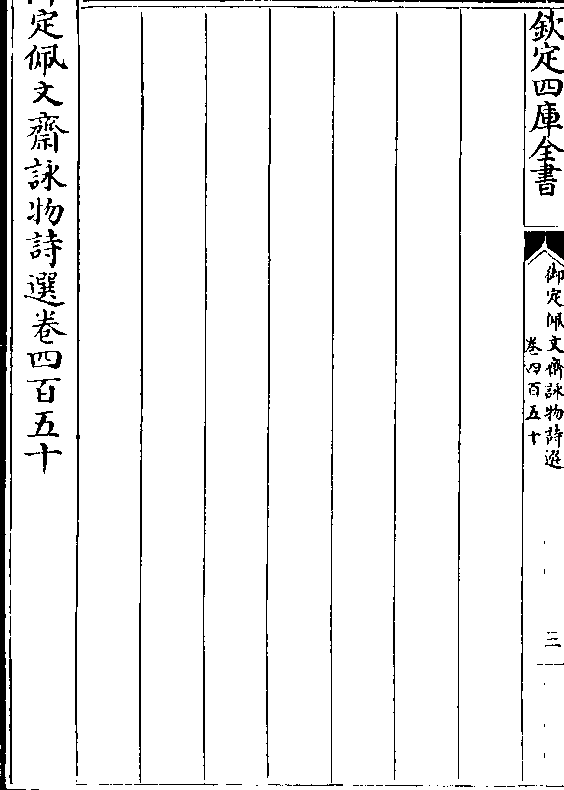 欽定四庫全書
御定佩文齋詠物詩選
卷四百五十
三
定佩文齋詠物詩選卷四百五十